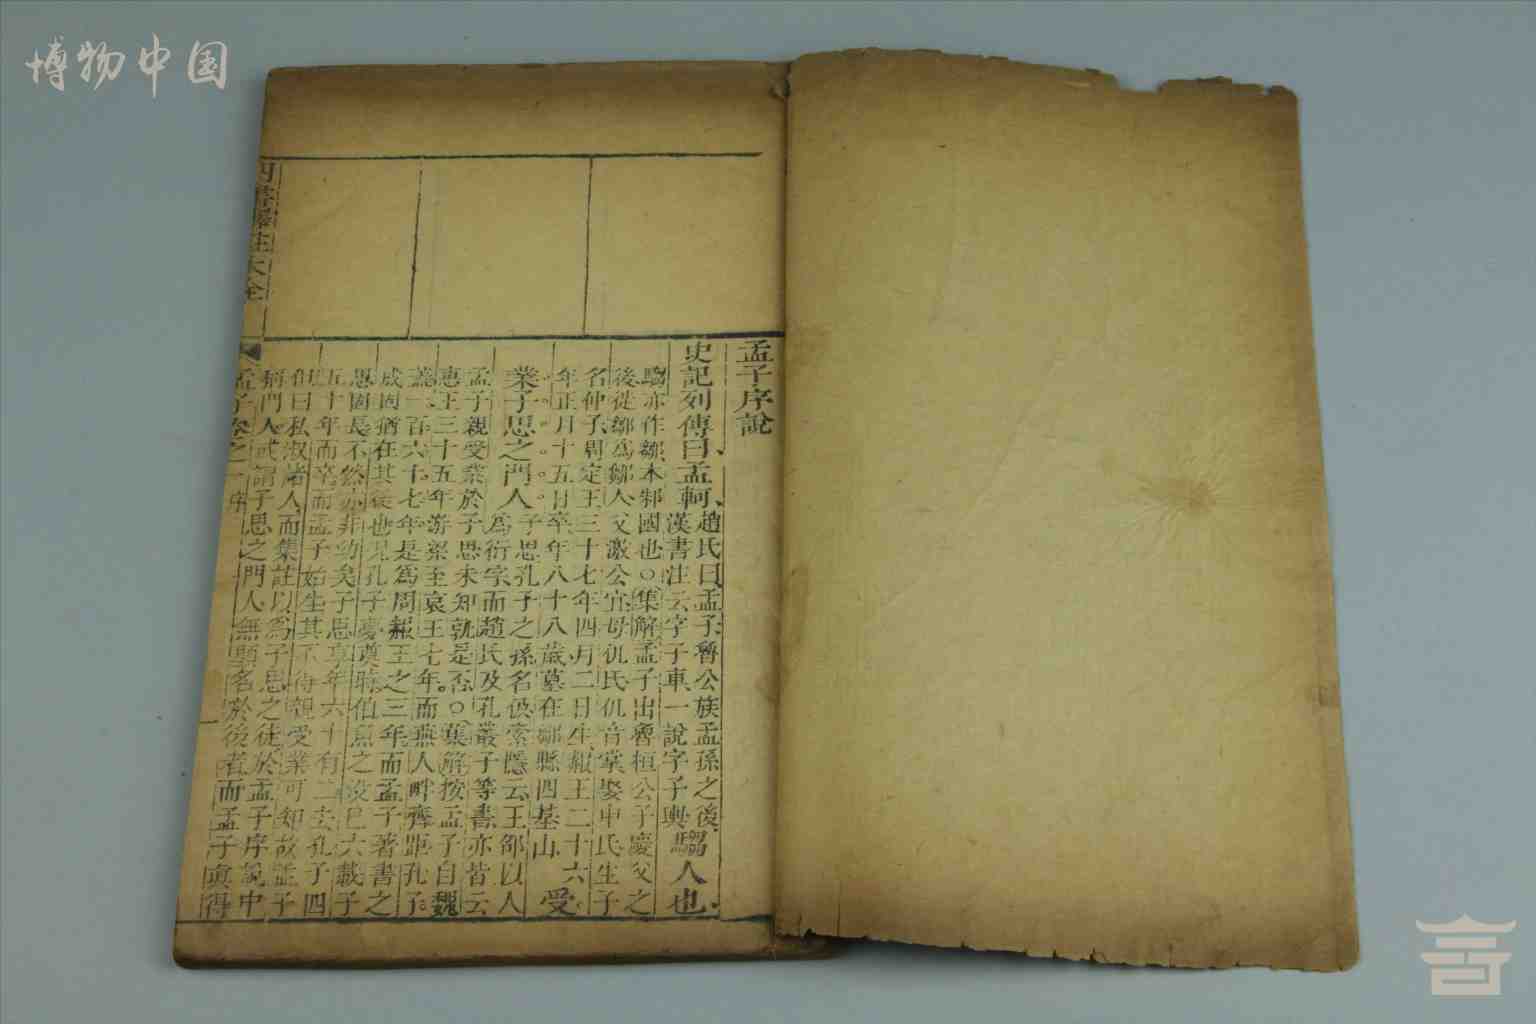 博物中国
孟子序說
史記列傳曰孟軻趙氏曰孟子魯公族孟孫之後
漢書注云字子車一說字子輿騶人也
騶亦作鄒本邾國也○集解孟子出魯桓公子慶父之
後徙鄒為鄒人父激公宜母仉氏仉音掌娶田氏生子
名仲子周定王三十七年四月二日生赧王二十六
年正月十五日卒年八十八歲墓在鄒縣四基山受
業子思之門人子思孔子之孫名伋索隱云王邵以人
為衍字而趙氏及孔叢子等書亦皆云
孟子親受業於子思未知孰是否○集解按孟子自魏
惠王三十五年游梁至哀王七年而燕人畔齊距孔子
蓋一百六十七年是為周赧王之三年而孟子著書之
成固猶在其後也見孔子夢奠時伯魚之沒已六載子
思固長不然亦非幼矣子思享年六十有二去孔子四
五十年而卒而孟子始生其不待親受業可知故註子
但曰私淑諸人而集註以為子思之徒於孟子序說中
稱門人或謂子思之門人無顯名於後者而孟子真得
四書 大全
孟子卷之一 序